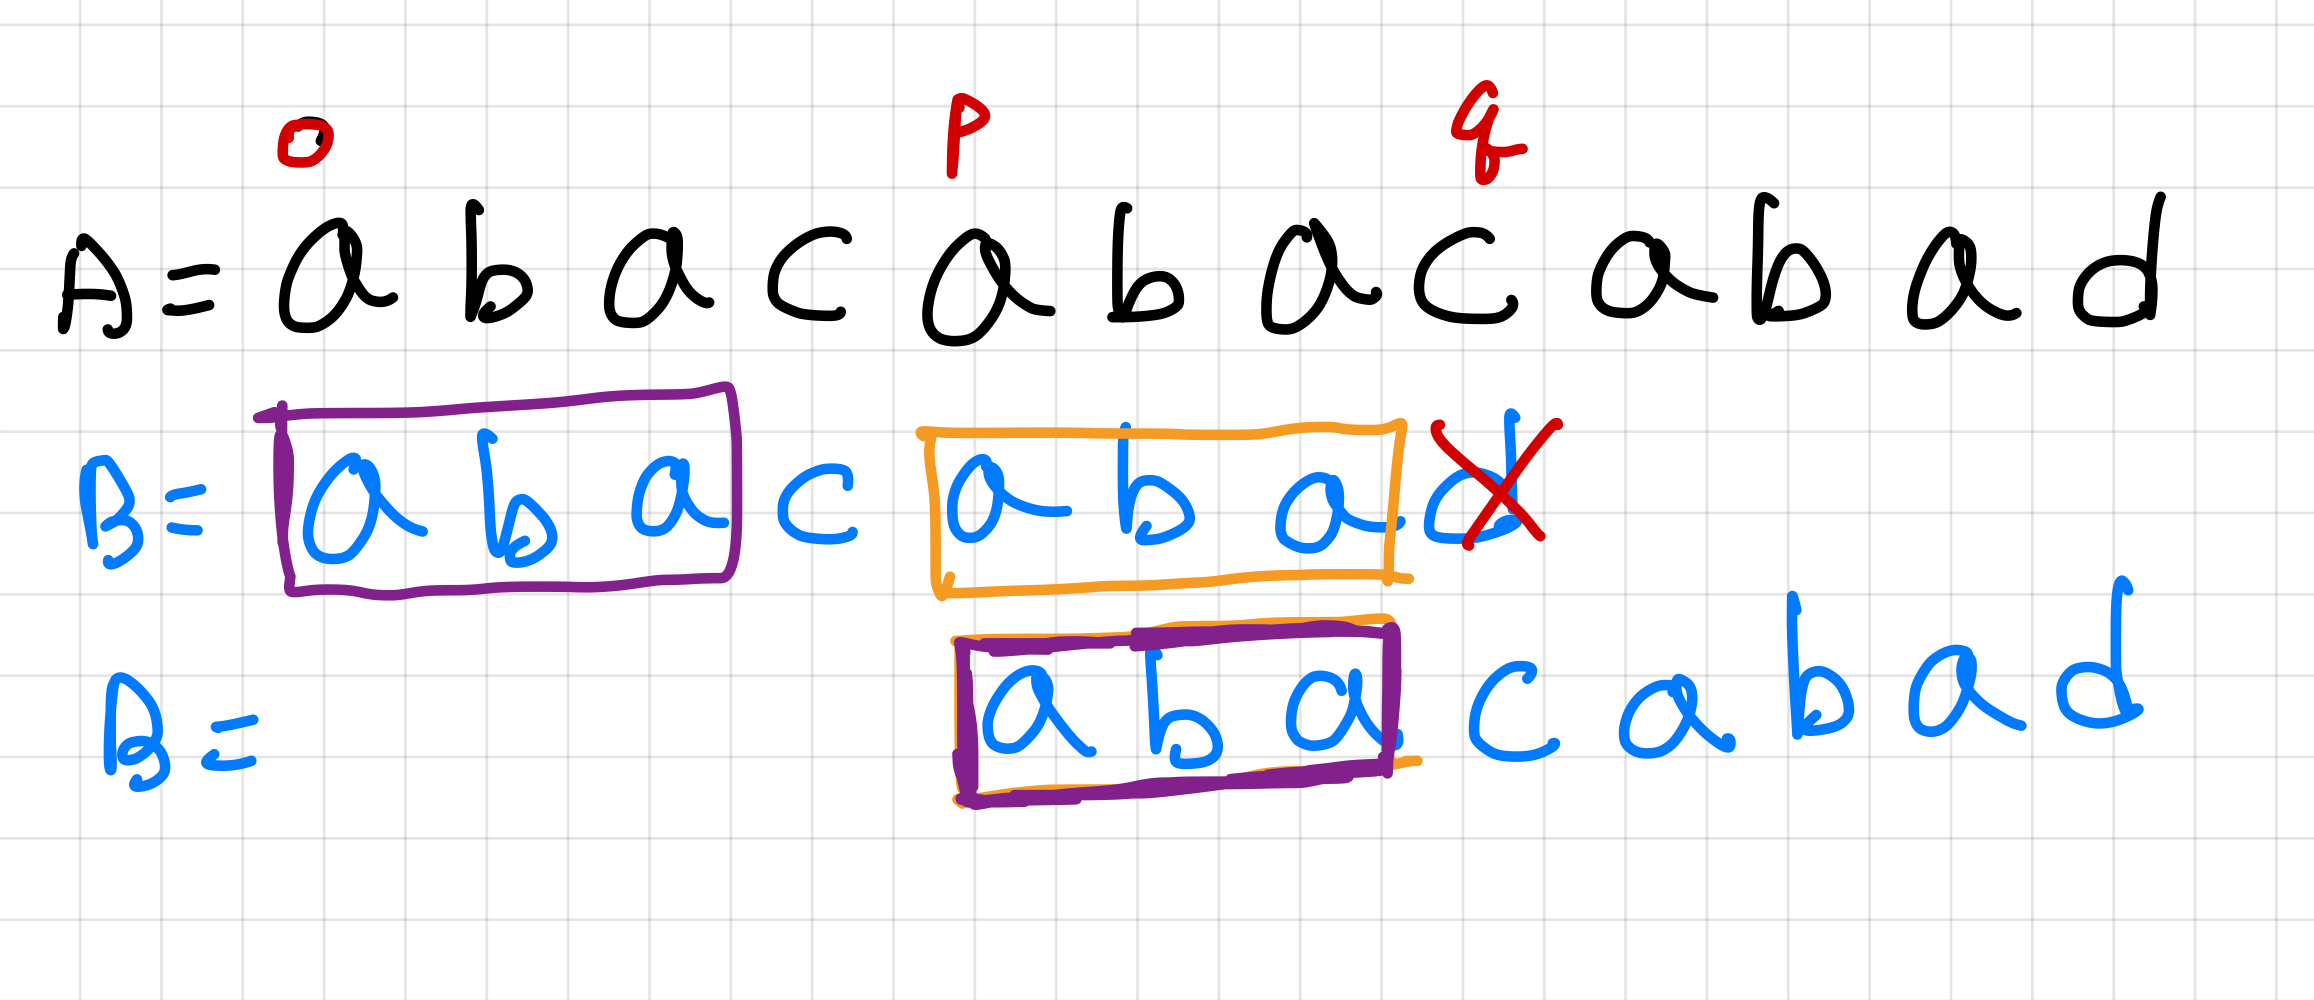 o p q
A = a b a c a b a c a b a d
B = a b a c a b a d
B = a b a c a b a d